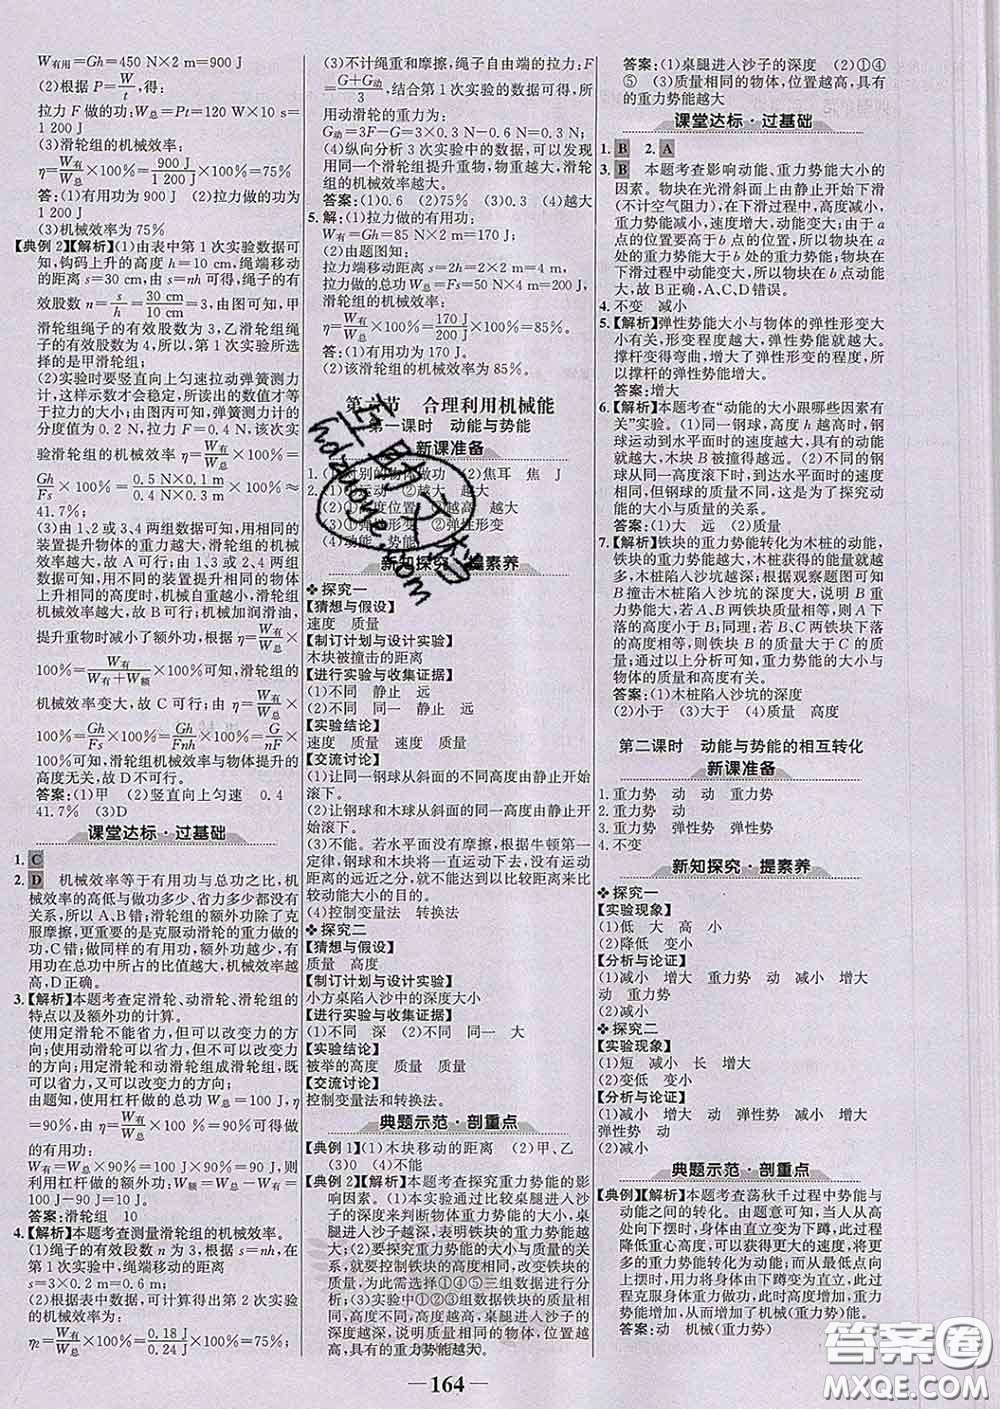 W有用=Gh=450 N×2 m=900 J
(2)根据 P=W/t,得:
拉力 F 做的功:W总=Pt=120 W×10 s=
1 200 J
(3)滑轮组的机械效率:
η=W有/W总×100%=900 J/1 200 J×100%=75%
答:(1)有用功为 900 J (2)拉力做的功为
1 200 J
(3)机械效率为 75%
【典例 2】【解析】(1)由表中第 1 次实验数据可
知,钩码上升的高度 h=10 cm,绳端移动
的距离 s=30 cm,由 s=nh 可得,绳子的有
效股数 n=s/h=30 cm/10 cm=3,由图可知,甲
滑轮组绳子的有效股数为 3,乙滑轮组绳子
的有效股数为 4,所以,第 1 次实验所选择的
是甲滑轮组;
(2)实验时要竖直向上匀速拉动弹簧测力
计,这样示数才会稳定,所读出的数值才等
于拉力的大小,由图丙可知,弹簧测力计的
分度值为 0.2 N,拉力 F=0.4 N,该次实
验滑轮组的机械效率 η=W有/W总×100%=
Gh/Fs×100%=0.5 N×0.1 m/0.4 N×0.3 m×100%≈
41.7%;
(3)由 1、2 或 3、4 两组数据可知,用相同的
装置提升物体的重力越大,滑轮组的机械效
率越大,故 A 可行;由 1、3 或 2、4 两组数据
可知,用不同的装置提升相同的物体
上升相同的高度时,机械效率不同,
故 B 可行;滑轮组加机械润滑油,
提升重物时减小了额外功,根据 η=W有/W总
×100%=W有/(W有+W额)×100%可知,滑轮组的
机械效率变大,故 C 可行;由 η=W有/W总
×100%=Gh/Fs×100%=Gh/Fnh×100%=G/nF
×100%可知,滑轮组机械效率与物体提升的
高度无关,故 D 不可行。
答案:(1)甲 (2)竖直向上匀速 0.4
41.7% (3)D
课堂达标·过基础
1. C
2. D 机械效率等于有用功与总功之比,机
械效率的高低与做功多少、省力多少都没有
关系,所以 A、B 错;滑轮组的额外功除了克
服摩擦,更重要的是克服动滑轮的重力做的
功,C 错;做同样的有用功,额外功越少,有
用功在总功中所占的比值越大,机械效率越
高,D 正确。
3.【解析】本题考查定滑轮、动滑轮、滑轮组的
特点以及额外功的计算。
使用定滑轮不能省力,但可以改变力的方
向;使用动滑轮可以省力,但不可以改变力
的方向;用定滑轮和动滑轮组成滑轮组,既
可以省力,又可以改变力的方向;
由题知,使用杠杆做的总功 W总=100 J,η
=90%,由 η=W有/W总×100%=90%可得做
的有用功:
W有=W总×90%=100 J×90%=90 J,则
利用杠杆做的额外功:W额=W总-W有=
100 J-90 J=10 J。
答案:滑轮组 10
4.【解析】本题考查测量滑轮组的机械效率。
(1)绳子的有效段数 n 为 3,根据 s=nh,在
第 1 次实验中,绳端移动的距离
s=3×0.2 m=0.6 m;
(2)根据表中数据,可计算得出第 2 次实验
的机械效率为:
η2=W有/W总×100%=0.18 J/0.24 J×100%=75%;
(3)不计绳重和摩擦,绳子自由端的拉力:F
=(G+G动)/3,结合第 1 次实验的数据可得,所
用动滑轮的重力:
G动=3F-G=3×0.3 N-0.6 N=0.3 N;
(4)纵向分析 3 次实验中的数据,可以发现
用同一个滑轮组提升重物,物重越大,滑轮
组的机械效率越大。
答案:(1)0.6 (2)75% (3)0.3 (4)越大
5. 解:(1)拉力做的有用功:
W有=Gh=85 N×2 m=170 J;
(2)由题图知:
拉力端移动距离 s=2h=2×2 m=4 m,
拉力做的总功 W总=Fs=50 N×4 m=200 J,
η=W有/W总×100%=170 J/200 J×100%=85%。
答:(1)有用功为 170 J。
(2)该滑轮组的机械效率为 85%。
合理利用机械能
第一课时 动能与势能
新课准备
(2)焦耳 焦 J
②越大 越大
越高 越大
②弹性形变
(4)动能 势能
新知探究·提素养
❖探究一
【猜想与假设】
速度 质量
【制订计划与设计实验】
木块被撞击的距离
【进行实验与收集证据】
(1)不同 静止 远
(2)不同 静止 远
【实验结论】
速度 质量 速度 质量
【交流讨论】
(1)让同一钢球从斜面的不同高度由静止开始
滚下。
(2)让钢球和木球从斜面的同一高度由静止开
始滚下。
(3)不能。若水平面没有摩擦,根据牛顿第一
定律,木块将做匀速直线运动,木块运动的
远近无法进行比较,所以不能完成比较
动能大小的目的。
(4)控制变量法 转换法
❖探究二
【猜想与假设】
质量 高度
【制订计划与设计实验】
小方桌陷入沙中的深度大小
【进行实验与收集证据】
(1)不同 深 (2)不同 同一 大
【实验结论】
被举的高度 质量 高度 质量
【交流讨论】
控制变量法和转换法。
典题示范·剖重点
【典例 1】(1)木块移动的距离 (2)甲、乙
(3)0 (4)不能
【典例 2】【解析】本题考查探究重力势能的影
响因素。(1)本实验通过比较桌腿进入沙子
的深度来判断物体重力势能的大小,桌腿进
入沙子越深,表明铁块的重力势能越
大;(2)要探究重力势能的大小与质量的关
系,就要控制铁块的高度相同,改变其质量,
为此需选择①④⑤三组数据进行分析;
(3)实验中①②③组数据铁块的质量
相同,高度越高,桌腿进入沙子的
深度越深,说明质量相同的物体,位置越高,
具有的重力势能越大。
答案:(1)桌腿进入沙子的深度 (2)①④
⑤ (3)质量相同的物体,位置越高,具有
的重力势能越大
课堂达标·过基础
1. B 2. A
3. B 本题考查影响动能、重力势能大小的
因素。物块在光滑斜面上由静止开始下滑
(不计空气阻力),在下滑过程中,高度减小,
重力势能减小,速度增大,动能变大;由于 a
点的位置要高于 b 点的位置,所以物块在 a
处的重力势能大于 b 处的重力势能;物块在
下滑过程中动能变大,所以物块在 b 点动能
大,故 B 正确,A、C、D 错误。
4. 不变 减小
5.【解析】弹性势能大小与物体的弹性形变大
小有关,弹性形变越大,弹性势能就越大。
撑杆变得弯曲,增大了弹性形变的程度,所
以,撑杆的弹性势能增大。
答案:增大
6.【解析】本题考查“动能的大小跟哪些因素有
关”实验。(1)同一钢球,高度 h 越高时,钢
球运动到水平面时的速度越大,具有的动能
越大,木块被撞得越远。(2)不同的钢球从
相同高度滚下,到达水平面时的速度相
同,但钢球的质量不同,这是为了探究动能
的大小与质量的关系。
答案:(1)大 远 (2)质量
7.【解析】铁块的重力势能转化为木桩的动能,
铁块的重力势能越大,木桩获得的能量越
大,木桩陷入沙坑越深;根据观察题图可知
B 撞击木桩陷入沙坑的深度大,说明 B 重
力势能大,若 A、B 两铁块质量相等,则 A 下
落的高度小于 B;同理:若 C、B 两铁块下落
的高度相等,则铁块 B 的质量大于 C 的质
量;通过以上分析可知,重力势能的大小与
物体的质量和高度有关。
答案:(1)木桩陷入沙坑的深度
(2)小于 (3)大于 (4)质量 高度
第二课时 动能与势能的相互转化
新课准备
1. 重力势 动 动 重力势
2. 重力势 动
3. 重力势 弹性势 弹性势 重力势
4. 不变
新知探究·提素养
❖探究一
【实验现象】
(1)低 大 高 小
(2)降低 变小
【分析与论证】
(1)减小 增大 重力势 动 减小 增大
动 重力势
(2)减小
❖探究二
【实验现象】
(1)短 减小 长 增大
(2)变低 变小
【分析与论证】
(1)减小 增大 动 弹性势 减小 增大
弹性势 动
(2)减小
典题示范·剖重点
【典例】【解析】本题考查荡秋千过程中势能与
动能之间的转化。由题意可知,当人从高
处向下摆时,身体由直立变为下蹲,此过程
降低重心高度,可以获得更大的速度,实现将
更多的重力势能转化为动能;而从最低点向
上摆时,用力将身体由下蹲变为直立,此过
程克服身体重力做功,此时高度增加,重力
势能增加,从而增加了机械(重力势)能。
答案:动 机械(重力势)
— 164 —
hdzuoye.com
答案圈
MXQE.COM